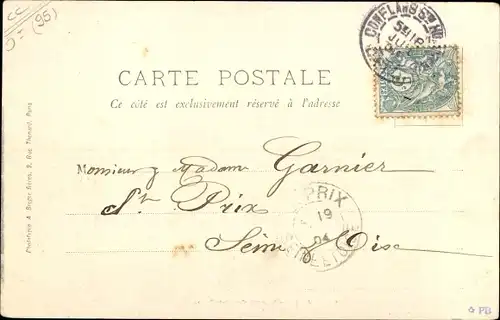 (95)
CONFLANS
CARTE POSTALE
Ce côté est exclusivement réservé à l'adresse
Monsieur & Madame Garnier
St. Prix
Seine & Oise
PRIX
19
04
Phototypie A. Bergeret, Rue Thenard, Paris
PB